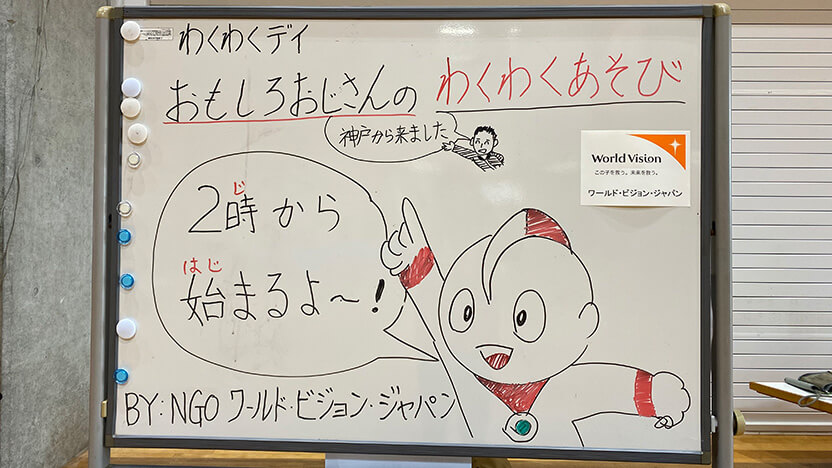 わくわくデイ
おもしろおじさんの わくわくあそび
神戸から来ました
World Vision
この子を救う。未来を救う。
ワールド・ビジョン・ジャパン
じ
2時から
はじ
始まるよ〜!
BY:NGO ワールド・ビジョン・ジャパン